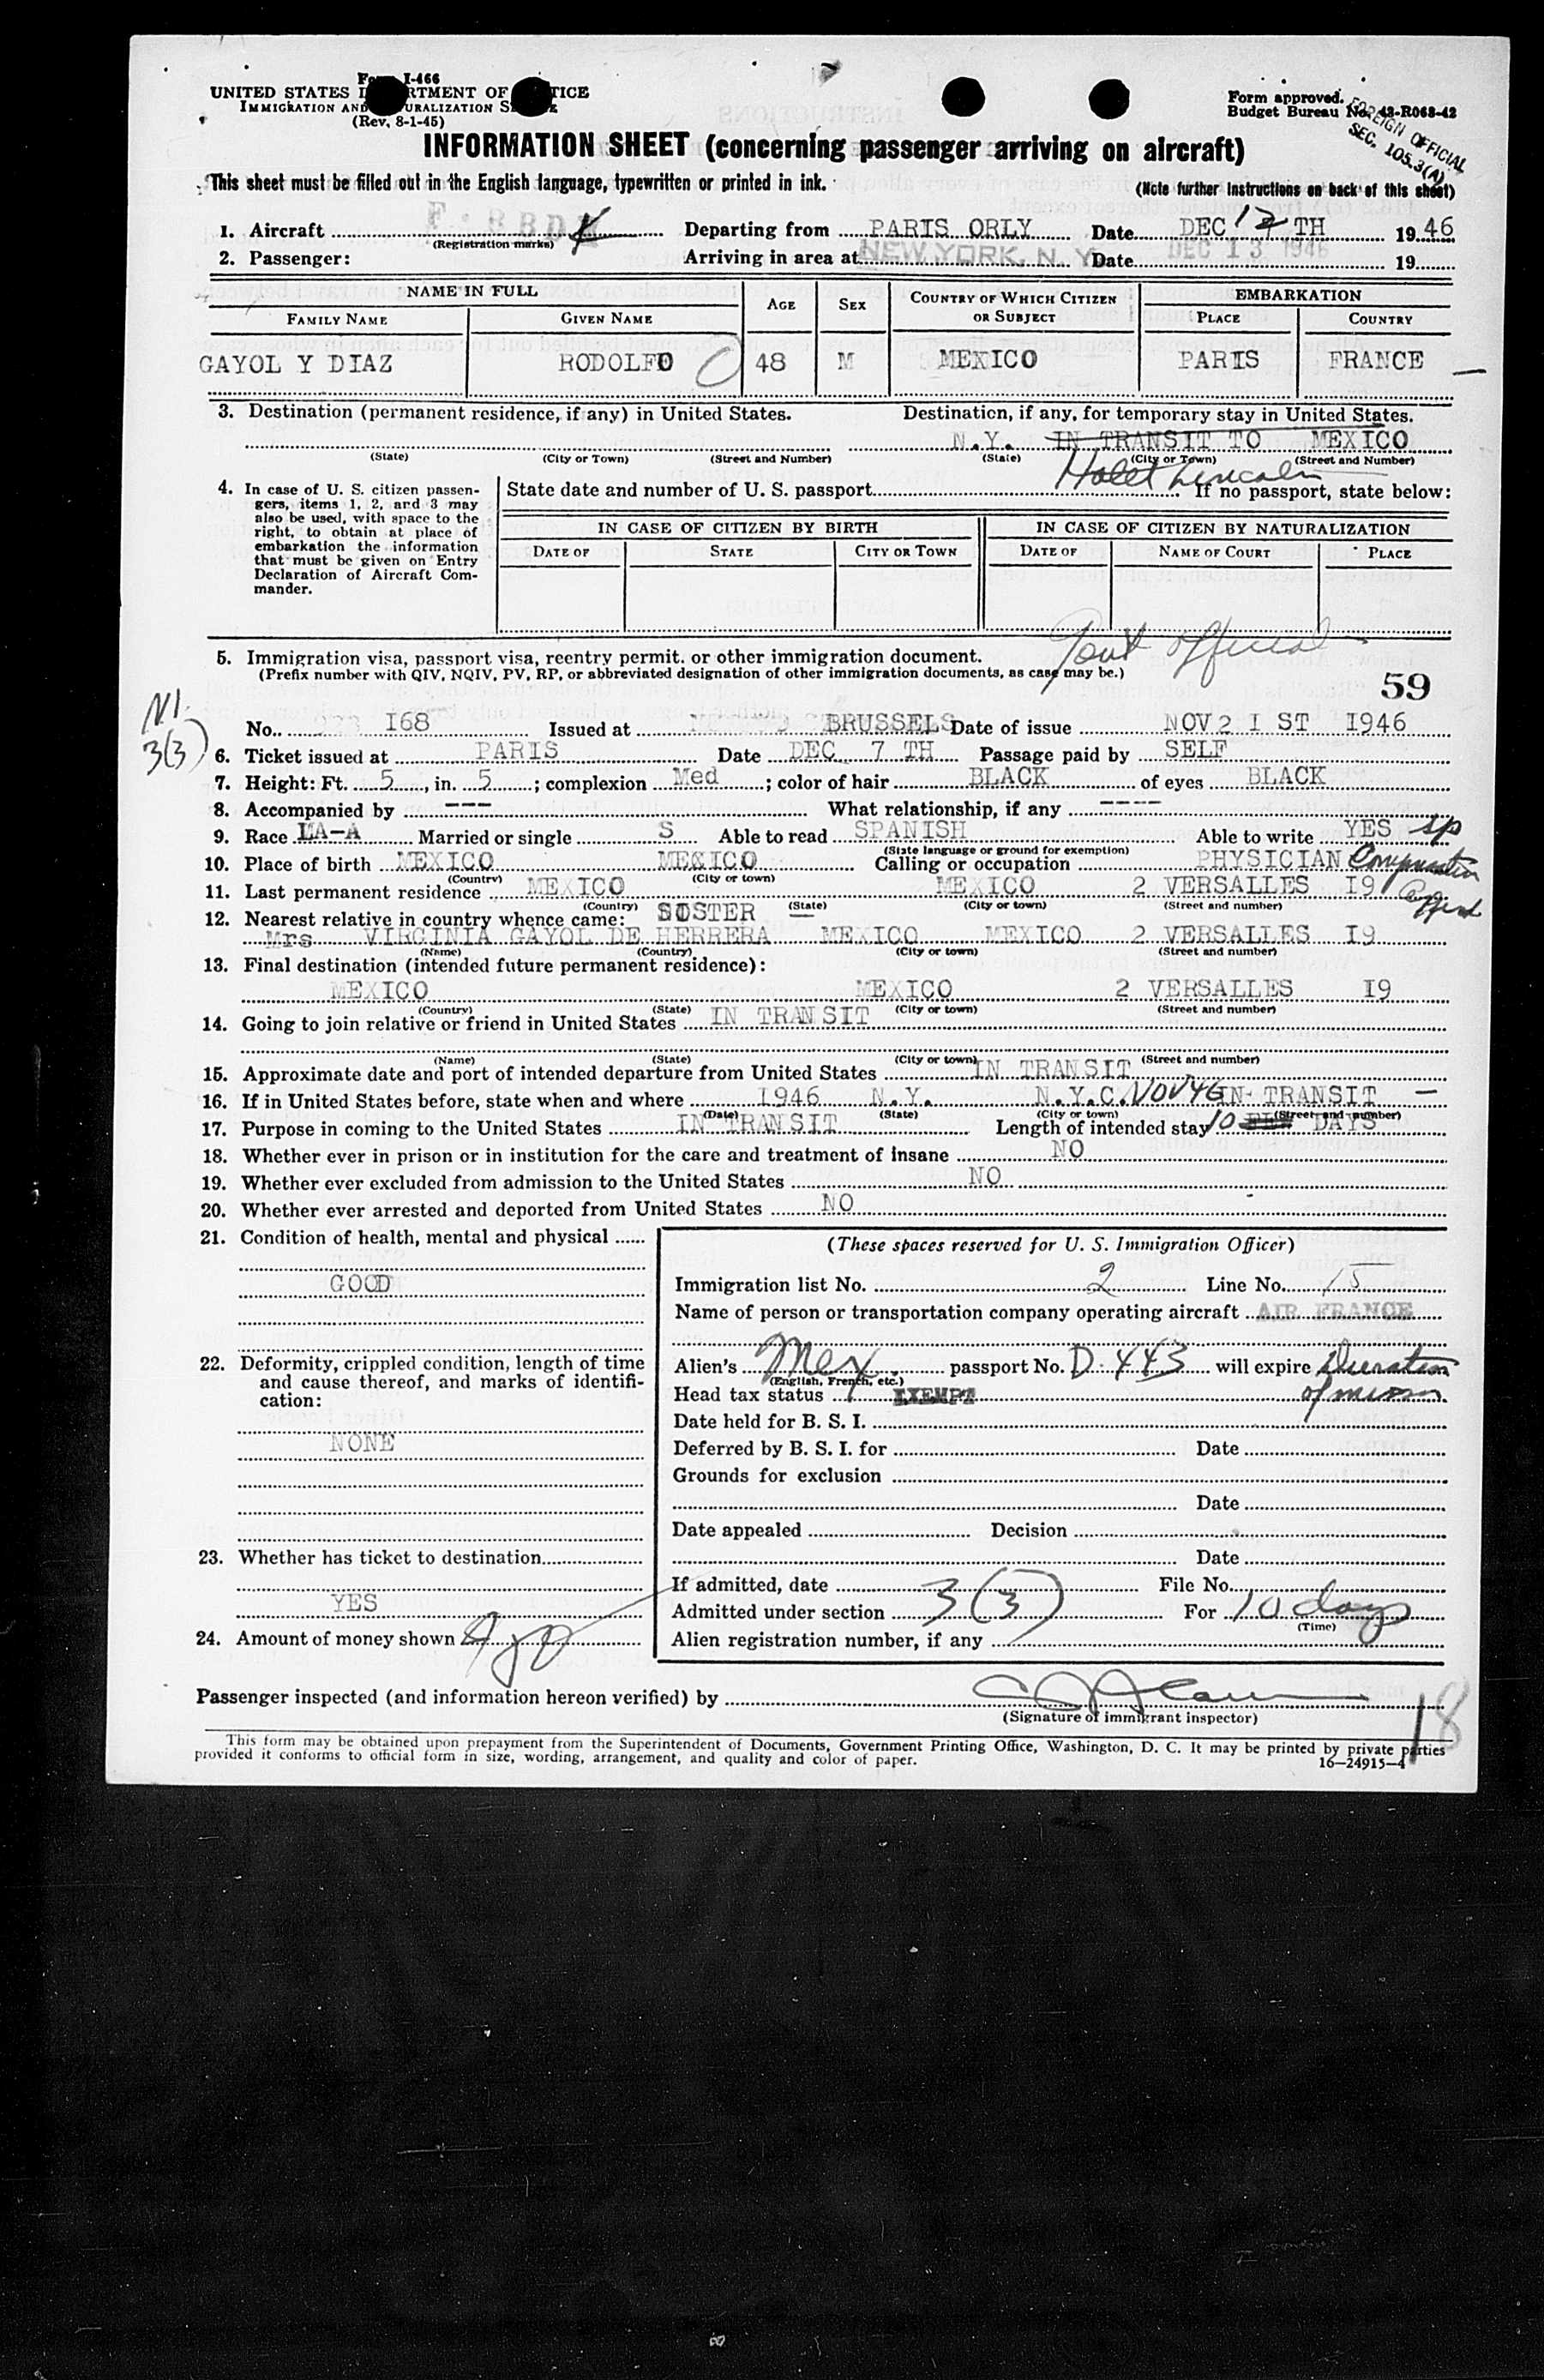 Form I-466
UNITED STATES DEPARTMENT OF JUSTICE
IMMIGRATION AND NATURALIZATION SERVICE
(Rev. 8-1-45)
Form approved.
Budget Bureau No. 43-R068-42
FOREIGN OFFICIAL
SEC. 105.3(A)
INFORMATION SHEET (concerning passenger arriving on aircraft)
This sheet must be filled out in the English language, typewritten or printed in ink.
(Note further instructions on back of this sheet)
1. Aircraft F-BBDK Departing from PARIS ORLY Date DEC 12 TH 1946
(Registration marks)
2. Passenger: Arriving in area at NEW YORK, N. Y. Date DEC 13 1946 19
NAME IN FULL AGE SEX COUNTRY OF WHICH CITIZEN OR SUBJECT EMBARKATION
FAMILY NAME GIVEN NAME PLACE COUNTRY
GAYOL Y DIAZ RODOLFO 48 M MEXICO PARIS FRANCE
3. Destination (permanent residence, if any) in United States. Destination, if any, for temporary stay in United States.
N.Y. IN TRANSIT TO MEXICO
(State) (City or Town) (Street and Number) (State) (City or Town) (Street and Number)
Hotel Lincoln
4. In case of U. S. citizen passengers, items 1, 2, and 3 may also be used, with space to the right, to obtain at place of embarkation the information that must be given on Entry Declaration of Aircraft Commander.
State date and number of U. S. passport If no passport, state below:
IN CASE OF CITIZEN BY BIRTH IN CASE OF CITIZEN BY NATURALIZATION
DATE OF STATE CITY OR TOWN DATE OF NAME OF COURT PLACE
Govt official
5. Immigration visa, passport visa, reentry permit, or other immigration document.
(Prefix number with QIV, NQIV, PV, RP, or abbreviated designation of other immigration documents, as case may be.)
59
N.I.
3(3)
No. I68 Issued at BRUSSELS Date of issue NOV 2 I ST I946
6. Ticket issued at PARIS Date DEC 7 TH Passage paid by SELF
7. Height: Ft. 5, in. 5; complexion Med; color of hair BLACK of eyes BLACK
8. Accompanied by --- What relationship, if any ----
9. Race LA-A Married or single S Able to read SPANISH Able to write YES sp
(State language or ground for exemption)
10. Place of birth MEXICO MEXICO Calling or occupation PHYSICIAN
(Country) (City or town)
11. Last permanent residence MEXICO MEXICO 2 VERSALLES I9
(Country) (State) (City or town) (Street and number)
12. Nearest relative in country whence came: SISTER
Mrs VIRGINIA GAYOL DE HERRERA MEXICO MEXICO 2 VERSALLES I9
(Name) (Country) (City or town) (Street and number)
13. Final destination (intended future permanent residence):
MEXICO MEXICO 2 VERSALLES I9
(Country) (State) (City or town) (Street and number)
14. Going to join relative or friend in United States IN TRANSIT
(Name) (State) (City or town) (Street and number)
15. Approximate date and port of intended departure from United States IN TRANSIT
16. If in United States before, state when and where I946 N.Y. N.Y.C. NOV 46 IN TRANSIT
(Date) (State) (City or town) (Street and number)
17. Purpose in coming to the United States IN TRANSIT Length of intended stay 10 DAYS
18. Whether ever in prison or in institution for the care and treatment of insane NO
19. Whether ever excluded from admission to the United States NO
20. Whether ever arrested and deported from United States NO
21. Condition of health, mental and physical
GOOD
22. Deformity, crippled condition, length of time and cause thereof, and marks of identification:
NONE
23. Whether has ticket to destination
YES
24. Amount of money shown
(These spaces reserved for U. S. Immigration Officer)
Immigration list No. 2 Line No. 15
Name of person or transportation company operating aircraft AIR FRANCE
Alien's Mex passport No. D-443 will expire Duration
(English, French, etc.)
Head tax status EXEMPT of mission
Date held for B. S. I.
Deferred by B. S. I. for Date
Grounds for exclusion
Date
Date appealed Decision
Date
If admitted, date File No.
Admitted under section 3(3) For 10 days
(Time)
Alien registration number, if any
Passenger inspected (and information hereon verified) by
(Signature of immigrant inspector)
18
This form may be obtained upon prepayment from the Superintendent of Documents, Government Printing Office, Washington, D. C. It may be printed by private parties
provided it conforms to official form in size, wording, arrangement, and quality and color of paper.
16—24915-4